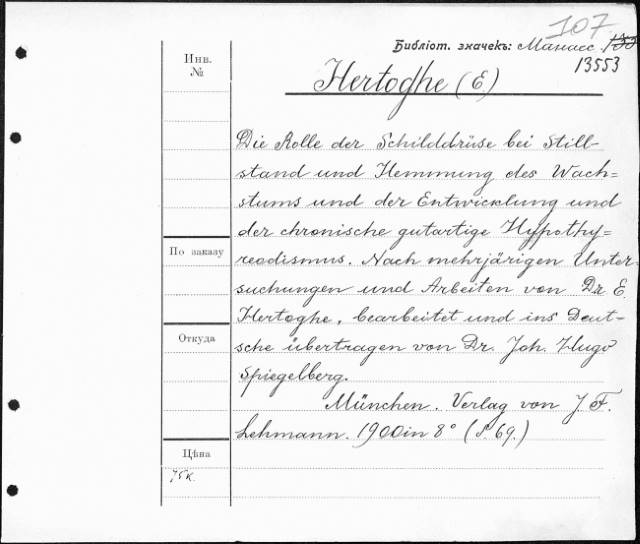 107
Библіот. значекъ: Манасс. 133
13553
Инв.
№
Hertoghe (E.)
Die Rolle der Schilddrüse bei Still-
stand und Hemmung des Wach=
stums und der Entwicklung und
der chronische gutartige Hypothy=
reodismus. Nach mehrjärigen Unter-
suchungen und Arbeiten von Dr. E.
Hertoghe, bearbeitet und ins Deut-
sche übertragen von Dr. Joh. Hugo
Spiegelberg.
München. Verlag von J. F.
Lehmann. 1900 in 8° (S. 69.)
По заказу
Откуда
Цѣна
75к.